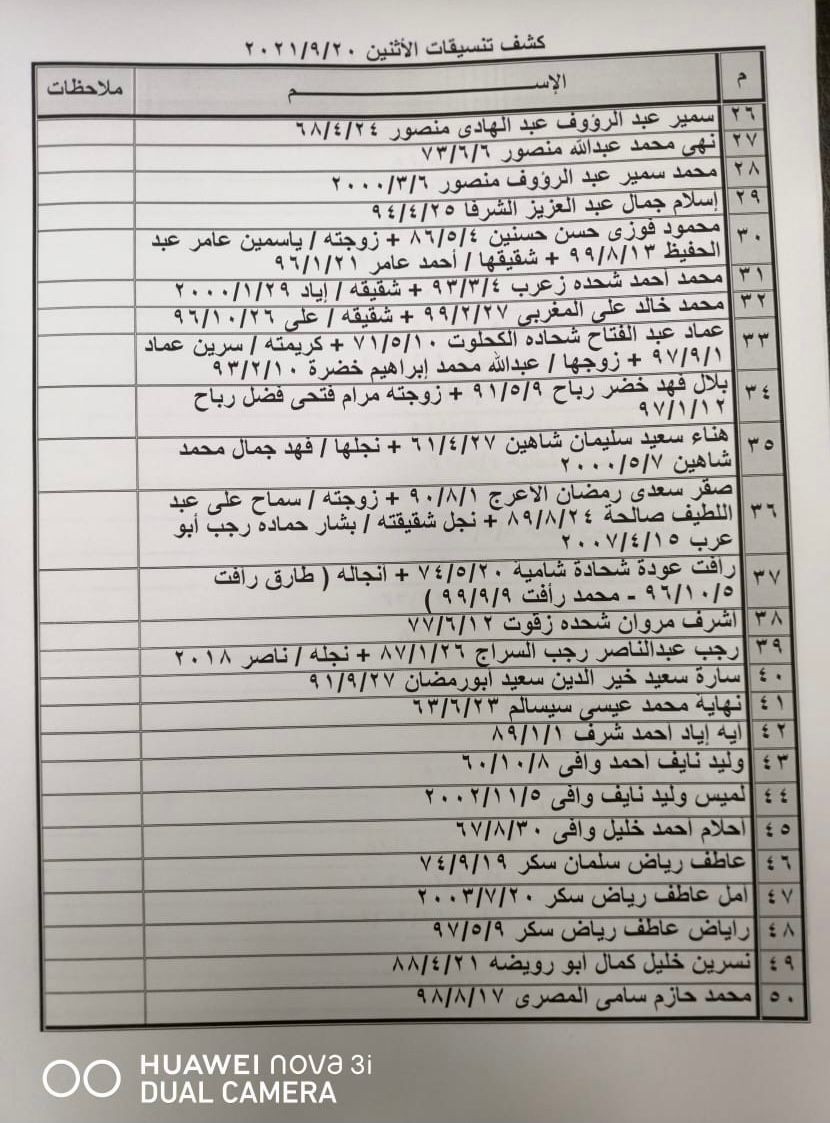 كشف تنسيقات الأثنين ٢٠٢١/٩/٢٠
م الإســـــــــــم ملاحظات
٢٦ سمير عبد الرؤوف عبد الهادى منصور ٦٨/٤/٢٤
٢٧ نهى محمد عبدالله منصور ٧٣/٦/٦
٢٨ محمد سمير عبد الرؤوف منصور ٢٠٠٠/٣/٦
٢٩ إسلام جمال عبد العزيز الشرفا ٩٤/٤/٢٥
٣٠ محمود فوزى حسن حسنين ٨٦/٥/٤ + زوجته / ياسمين عامر عبد
الحفيظ ٩٩/٨/١٣ + شقيقها / أحمد عامر ٩٦/١/٢١
٣١ محمد احمد شحده زعرب ٩٣/٣/٤ + شقيقه / إياد ٢٠٠٠/١/٢٩
٣٢ محمد خالد على المغربى ٩٩/٢/٢٧ + شقيقه / على ٩٦/١٠/٢٦
٣٣ عماد عبد الفتاح شحاده الكحلوت ٧١/٥/١٠ + كريمته / سرين عماد
٩٧/٩/١ + زوجها / عبدالله محمد إبراهيم خضرة ٩٣/٢/١٠
٣٤ بلال فهد خضر رباح ٩١/٥/٩ + زوجته مرام فتحى فضل رباح
٩٧/١/١٢
٣٥ هناء سعيد سليمان شاهين ٦١/٤/٢٧ + نجلها / فهد جمال محمد
شاهين ٢٠٠٠/٥/٧
٣٦ صقر سعدى رمضان الاعرج ٩٠/٨/١ + زوجته / سماح على عبد
اللطيف صالحة ٨٩/٨/٢٤ + نجل شقيقته / بشار حماده رجب أبو
عرب ٢٠٠٧/٤/١٥
٣٧ رافت عودة شحادة شامية ٧٤/٥/٢٠ + انجاله ( طارق رافت
٩٦/١٠/٥ - محمد رأفت ٩٩/٩/٩ )
٣٨ اشرف مروان شحده زقوت ٧٧/٦/١٢
٣٩ رجب عبدالناصر رجب السراج ٨٧/١/٢٦ + نجله / ناصر ٢٠١٨
٤٠ سارة سعيد خير الدين سعيد ابورمضان ٩١/٩/٢٧
٤١ نهاية محمد عيسى سيسالم ٦٣/٦/٢٣
٤٢ ايه إياد احمد شرف ٨٩/١/١
٤٣ وليد نايف احمد وافى ٦٠/١٠/٨
٤٤ لميس وليد نايف وافى ٢٠٠٢/١١/٥
٤٥ احلام احمد خليل وافى ٦٧/٨/٣٠
٤٦ عاطف رياض سلمان سكر ٧٤/٩/١٩
٤٧ امل عاطف رياض سكر ٢٠٠٣/٧/٢٠
٤٨ راياض عاطف رياض سكر ٩٧/٥/٩
٤٩ نسرين خليل كمال ابو رويضه ٨٨/٤/٢١
٥٠ محمد حازم سامى المصرى ٩٨/٨/١٧
HUAWEI nova 3i
DUAL CAMERA